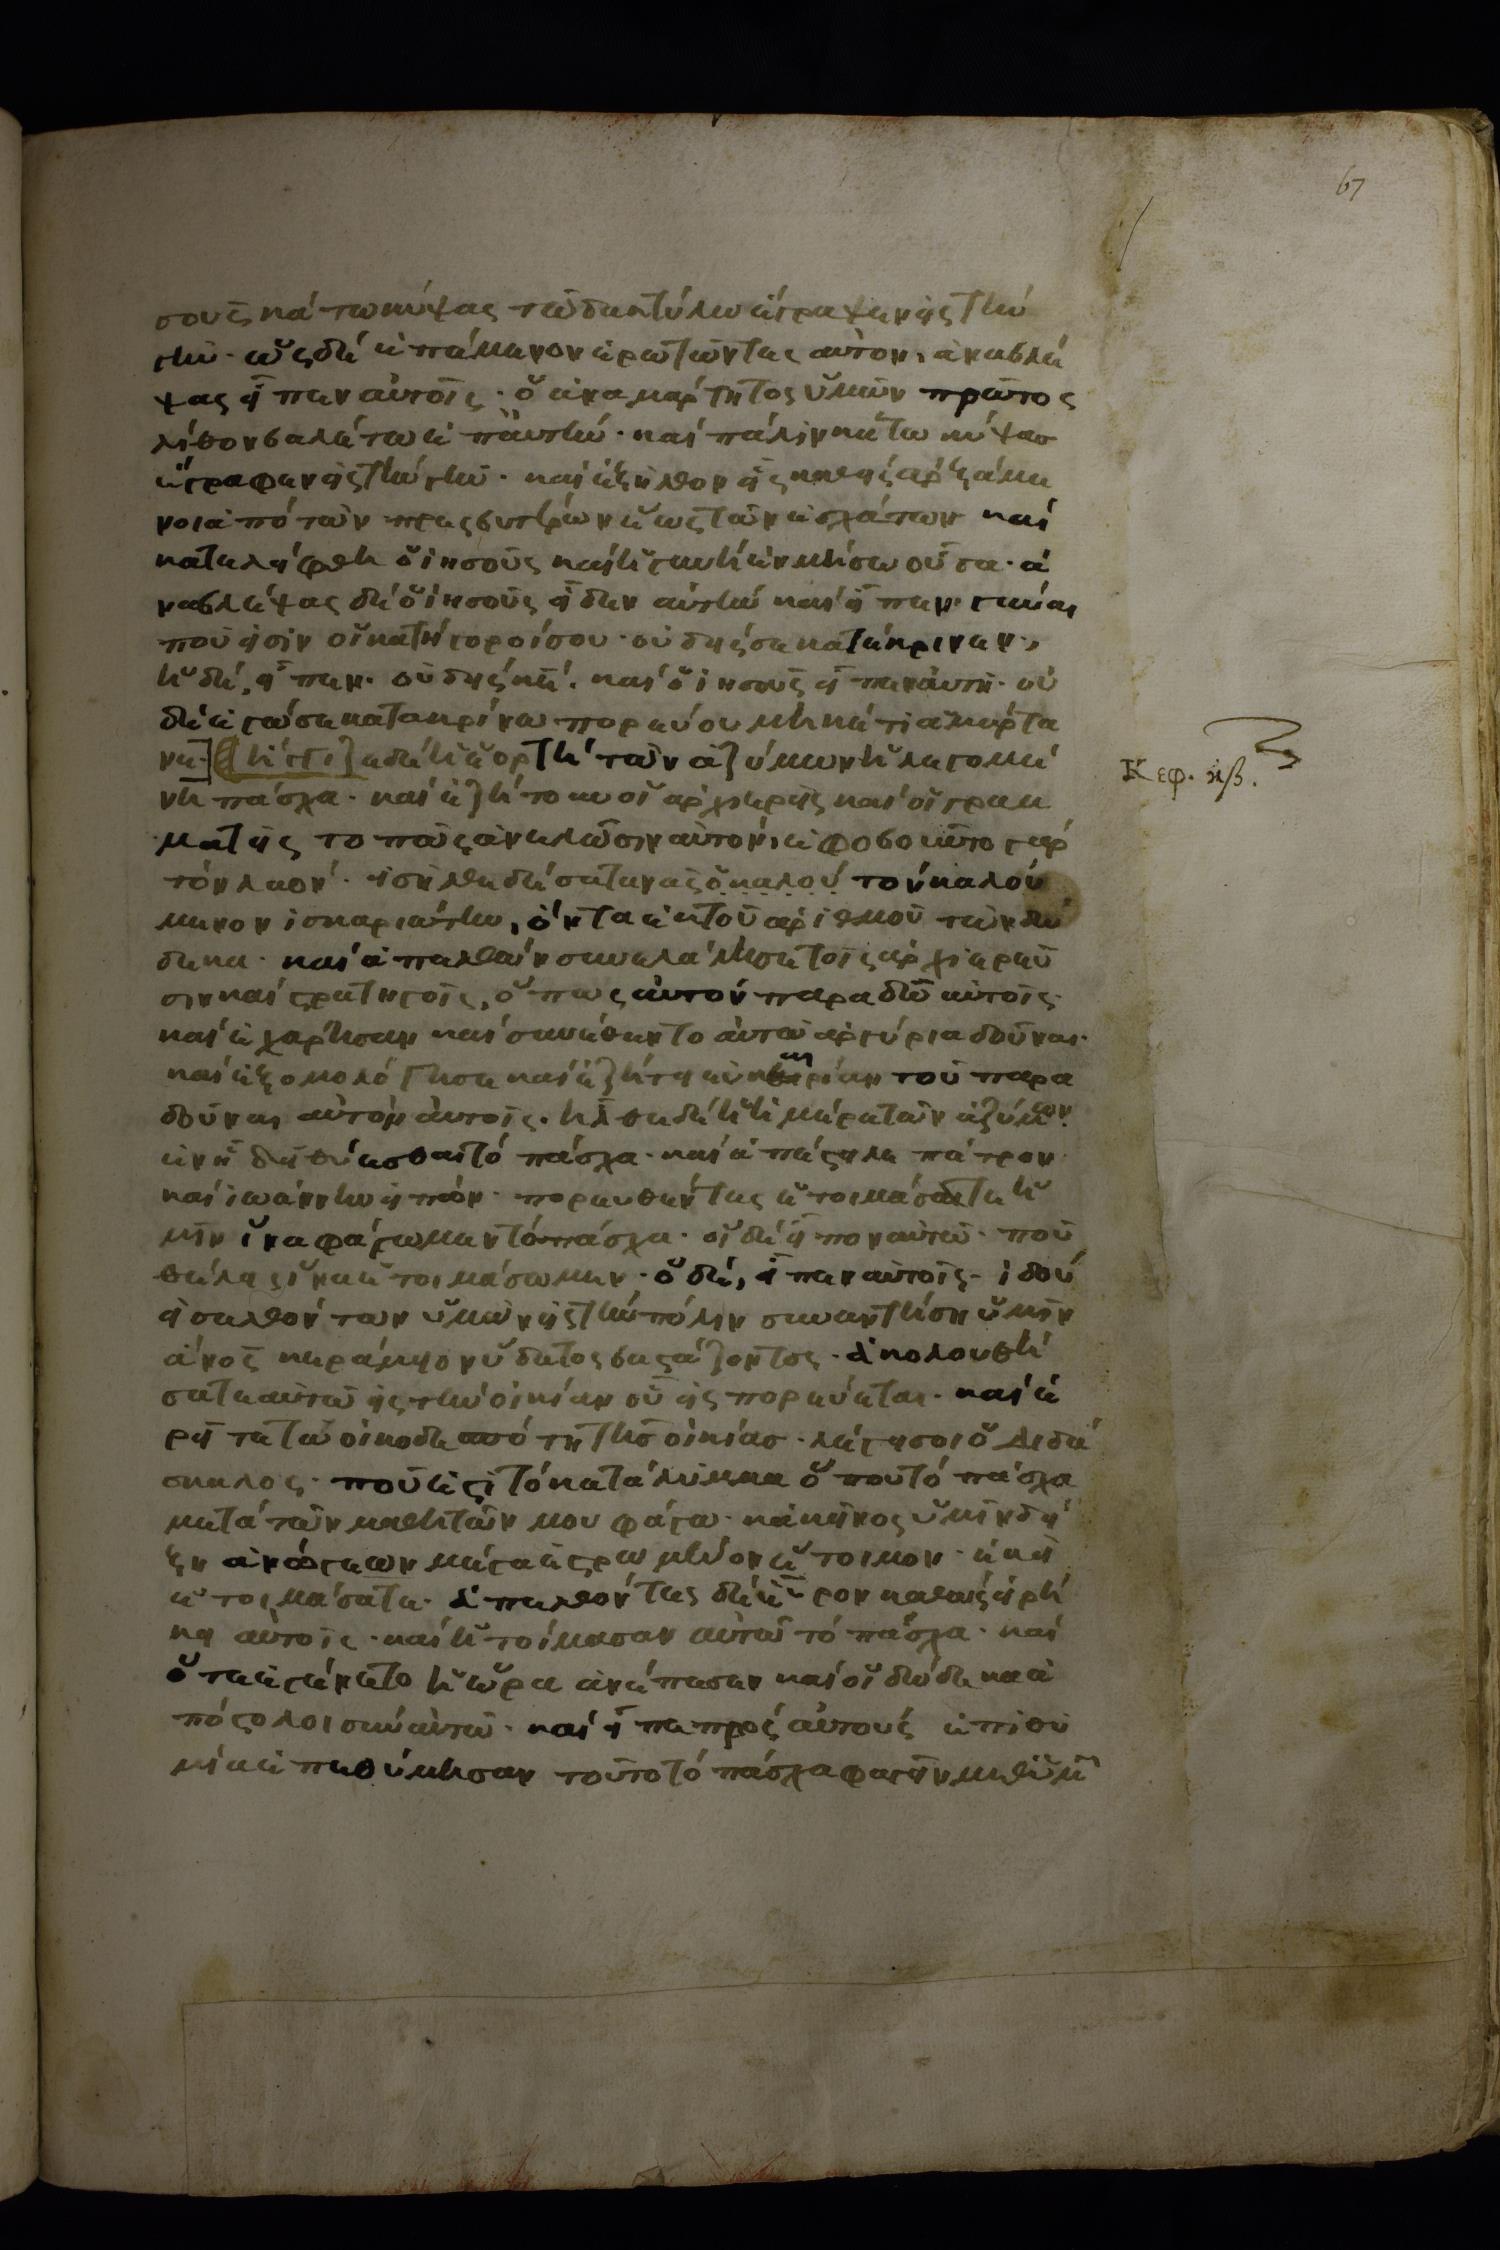 67
σοῦς κάτω κύψας τῶ δακτύλω ἔγραψεν εἰς τὴν
γῆν· ὡς δὲ ἐπέμενον ἐρωτῶντες αὐτόν, ἀναβλέ
ψας εἶπεν αὐτοῖς· ὁ ἀναμάρτητος ὑμῶν πρῶτος
λίθον βαλέτω ἐπ αὐτήν· καὶ πάλιν κάτω κύψας
ἔγραφεν εἰς τὴν γῆν· καὶ ἐξῆλθον εἷς καθεὶς ἀρξάμε
νοι ἀπὸ τῶν πρεσβυτέρων ἕως τῶν ἐσχάτων καὶ
κατελείφθη ὁ ἰησοῦς καὶ ἡ γυνὴ ἐν μέσω οὖσα· ἀ
ναβλέψας δὲ ὁ ἰησοῦς εἶδεν αὐτὴν καὶ εἶπεν· γύναι
ποῦ εἰσιν οἱ κατήγοροί σου· οὐδείς σε κατέκρινεν·
ἡ δὲ, εἶπεν· οὐδεὶς κε· καὶ ὁ ἰησοῦς εἶπεν αὐτῆ· οὐ
δὲ ἐγώ σε κατακρίνω πορεύου μηκέτι ἁμάρτα
νε· ἤγγιζε δὲ ἡ ἑορτὴ τῶν ἀζύμων ἡ λεγομέ
νη πάσχα· καὶ ἐζήτουν οἱ ἀρχιερεῖς καὶ οἱ γραμ
ματεῖς τὸ πῶς ἀνέλωσιν αὐτόν, ἐφοβοῦντο γὰρ
τὸν λαόν· εἰσῆλθε δὲ σατανᾶς ὁ καλού τὸν καλού
μενον ἰσκαριώτην, ὄντα ἐκ τοῦ ἀριθμοῦ τῶν δώ
δεκα· καὶ ἀπελθὼν συνελάλησε τοῖς ἀρχιερεῦ
σιν καὶ στρατηγοῖς, ὅπως αὐτὸν παραδῶ αὐτοῖς·
καὶ ἐχάρησαν καὶ συνέθεντο αὐτῶ ἀργύρια δοῦναι·
καὶ ἐξομολόγησε καὶ ἐζήτει εὐκαιρίαν τοῦ παρα
δοῦναι αὐτὸν αὐτοῖς· ἦλθε δὲ ἡ ἡμέρα τῶν ἀζύμων·
ἐν ἧ δεῖ θύεσθαι τὸ πάσχα· καὶ ἀπέστειλε πέτρον
καὶ ἰωάννην εἰπών· πορευθέντες ἑτοιμάσατε ἡ
μῖν ἵνα φάγωμεν τὸ πάσχα· οἱ δὲ εἶπον αὐτῶ· ποῦ
θέλεις ἵνα ἑτοιμάσωμεν· ὁ δὲ, εἶπεν αὐτοῖς· ἰδοὺ
εἰσελθόντων ὑμῶν εἰς τὴν πόλιν συναντήση ὑμῖν
ανος κεράμιον ὕδατος βαστάζοντος· ἀκολουθή
σατε αὐτῶ εἰς τὴν οἰκίαν οὗ εἰσπορεύεται· καὶ ἐ
ρεῖτε τῶ οἰκοδεσπότη τῆς οἰκίας· λέγει σοι ὁ διδά
σκαλος· ποῦ ἐστι τὸ κατάλυμμα ὅπου τὸ πάσχα
μετὰ τῶν μαθητῶν μου φάγω· κἀκεῖνος ὑμῖν δεί
ξει ἀνώγεων μέγα ἐστρωμένον ἕτοιμον· ἐκεῖ
ἑτοιμάσατε· ἀπελθόντες δὲ εὗρον καθὼς εἰρή
κει αὐτοῖς· καὶ ἡτοίμασαν αὐτῶ τὸ πάσχα· καὶ
ὅτε ἐγένετο ἡ ὥρα ἀνέπεσεν καὶ οἱ δώδεκα ἀ
πόστολοι σὺν αὐτῶ· καὶ εἶπε πρὸς αὐτούς ἐπιθυ
μία ἐπεθύμησαν τοῦτο τὸ πάσχα φαγεῖν μεθ ὑμῶ
Κεφ. κβ.